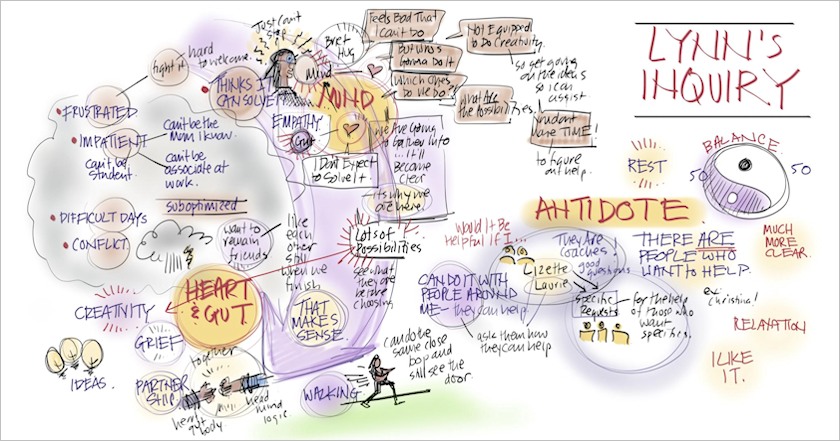 LYNN'S
INQUIRY
Just can't
stop
Bret
Hug
Mind
Feels Bad That
I can't do
But Who's
Gonna Do It
Which Ones
Do We Do??
Not Equipped
To Do Creativity.
so get going
on the ideas
so I can
assist.
What Are
the Possibilities
wouldn't
have TIME!
to figure
out help.
hard
to welcome.
fight it
THINKS I
CAN SOLVE
MIND
EMPATHY
Gut
I Don't Expect
to Solve It.
We Are Going
to
...it'll
become
clear
its why we
are here.
• FRUSTRATED
• IMPATIENT
can't be the
Mom I know.
can't be
student.
can't be
associate at
work.
suboptimized
• DIFFICULT DAYS
• CONFLICT
want to
remain
friends
like
each
other
still
when we
finish
Lots of
Possibilities
see what
they are
before
choosing
HEART
& GUT.
CREATIVITY
GRIEF
IDEAS.
PARTNER
SHIP
together
heart
gut
body
head
mind
logic
THAT
MAKES
SENSE.
WALKING
can do the
same close
bop and
still see the
door.
BALANCE
50
50
REST
ANTIDOTE
Would It Be
Helpful if I...
They Are
coaches
good
questions
Lizette
Laurie
CAN DO IT WITH
PEOPLE AROUND
ME - they can help.
ask them how
they can help
specific
Requests
for the help
of those who
want
specifics.
THERE ARE
PEOPLE WHO
WANT TO HELP.
ex. Christina!
MUCH
MORE
CLEAR.
RELAXATION
I LIKE
IT.